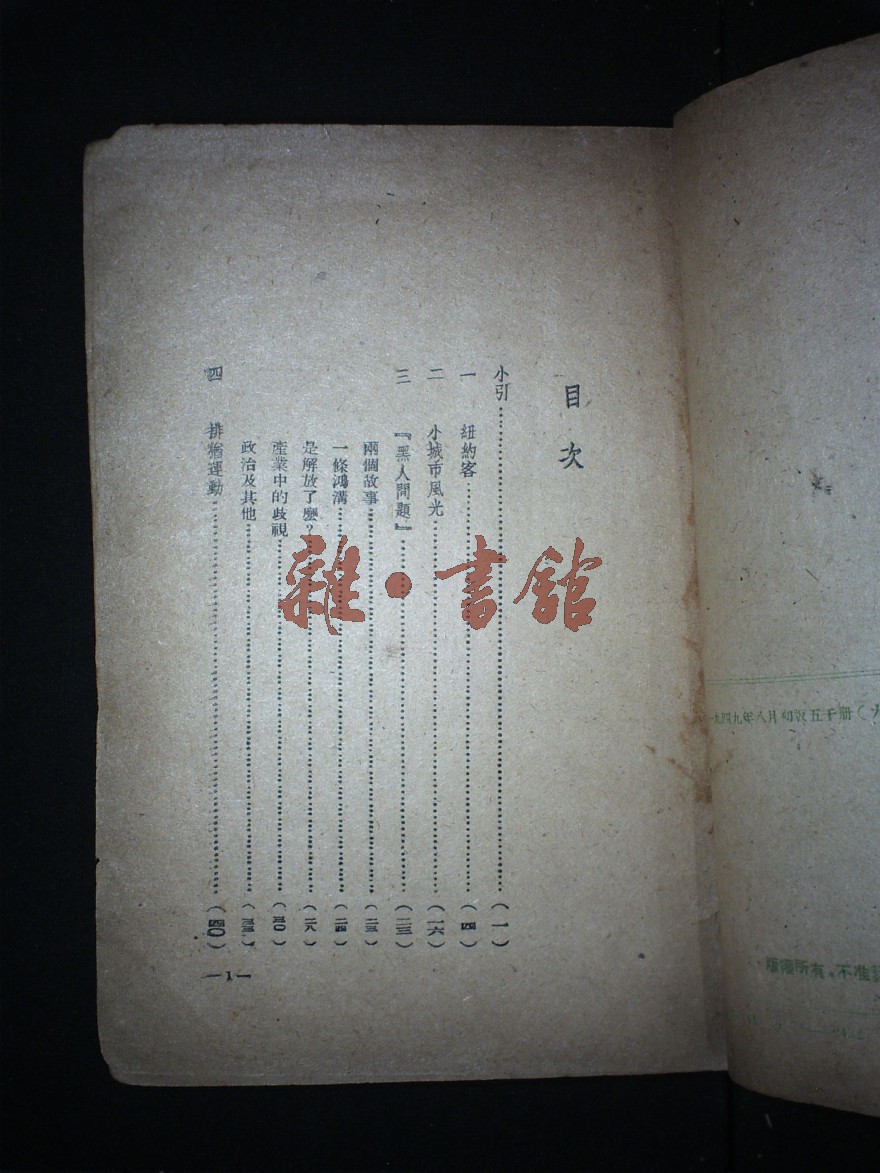 目次
小引 (一)
一 紐約客 (四)
二 小城市風光 (一六)
三 『黑人問題』 (二三)
兩個故事 (二三)
一條鴻溝 (二四)
是解放了麽? (二八)
產業中的歧視 (三〇)
政治及其他
四 排猶運動 (四〇)
—1—
雜·書館
一九四九年八月初版五千册(
版權所有·不准